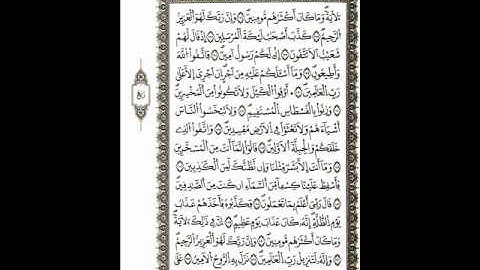 لَآيَةً ۖ وَمَا كَانَ أَكْثَرُهُم مُّؤْمِنِينَ ۝ وَإِنَّ رَبَّكَ لَهُوَ الْعَزِيزُ
الرَّحِيمُ ۝ كَذَّبَ أَصْحَابُ لْـَٔيْكَةِ الْمُرْسَلِينَ ۝ إِذْ قَالَ لَهُمْ
شُعَيْبٌ أَلَا تَتَّقُونَ ۝ إِنِّي لَكُمْ رَسُولٌ أَمِينٌ ۝ فَاتَّقُوا اللَّهَ
وَأَطِيعُونِ ۝ وَمَا أَسْأَلُكُمْ عَلَيْهِ مِنْ أَجْرٍ ۖ إِنْ أَجْرِيَ إِلَّا عَلَىٰ
رَبِّ الْعَالَمِينَ ۝ أَوْفُوا الْكَيْلَ وَلَا تَكُونُوا مِنَ الْمُخْسِرِينَ ۝
وَزِنُوا بِالْقِسْطَاسِ الْمُسْتَقِيمِ ۝ وَلَا تَبْخَسُوا النَّاسَ
أَشْيَاءَهُمْ وَلَا تَعْثَوْا فِي الْأَرْضِ مُفْسِدِينَ ۝ وَاتَّقُوا الَّذِي
خَلَقَكُمْ وَالْجِبِلَّةَ الْأَوَّلِينَ ۝ قَالُوا إِنَّمَا أَنتَ مِنَ الْمُسَحَّرِينَ ۝
وَمَا أَنتَ إِلَّا بَشَرٌ مِّثْلُنَا وَإِن نَّظُنُّكَ لَمِنَ الْكَاذِبِينَ ۝
فَأَسْقِطْ عَلَيْنَا كِسَفًا مِّنَ السَّمَاءِ إِن كُنتَ مِنَ الصَّادِقِينَ ۝
قَالَ رَبِّي أَعْلَمُ بِمَا تَعْمَلُونَ ۝ فَكَذَّبُوهُ فَأَخَذَهُمْ عَذَابُ
يَوْمِ الظُّلَّةِ ۚ إِنَّهُ كَانَ عَذَابَ يَوْمٍ عَظِيمٍ ۝ إِنَّ فِي ذَٰلِكَ لَآيَةً ۖ
وَمَا كَانَ أَكْثَرُهُم مُّؤْمِنِينَ ۝ وَإِنَّ رَبَّكَ لَهُوَ الْعَزِيزُ الرَّحِيمُ
۝ وَإِنَّهُ لَتَنزِيلُ رَبِّ الْعَالَمِينَ ۝ نَزَلَ بِهِ الرُّوحُ الْأَمِينُ ۝ عَلَىٰ